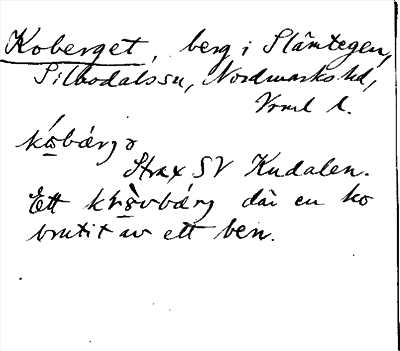 Koberget, berg i Slämtegen,
Silbodals sn, Nordmarks hd,
Vrml l.
kóbærjə
Strax SV Kudalen.
Ett bærj där en ko
brutit av ett ben.